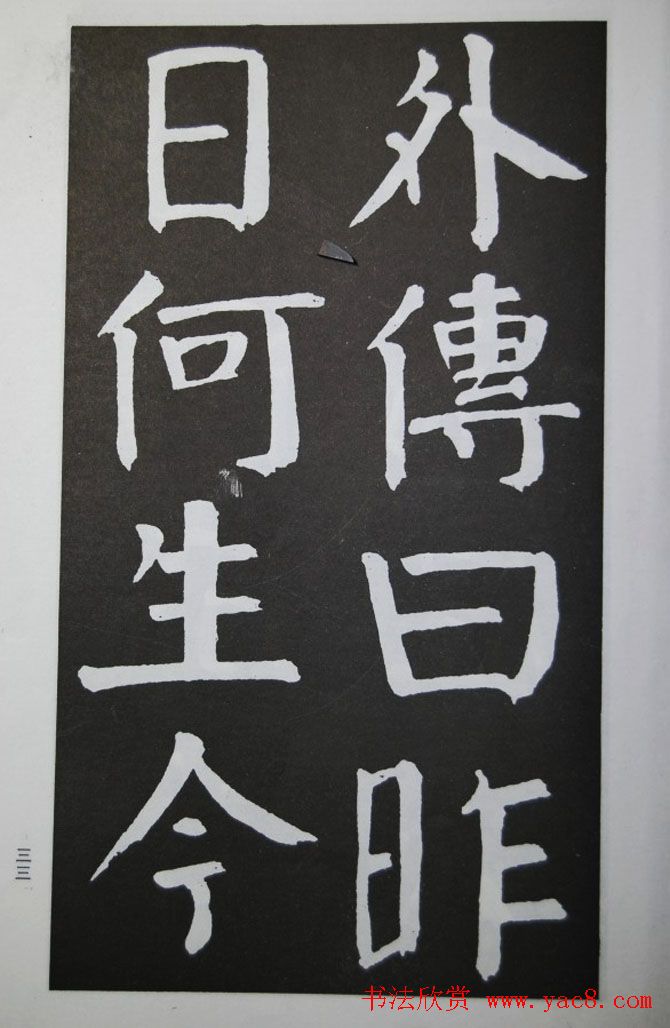 外傳曰昨
日何生今
三三
书法欣赏 www.yac8.com